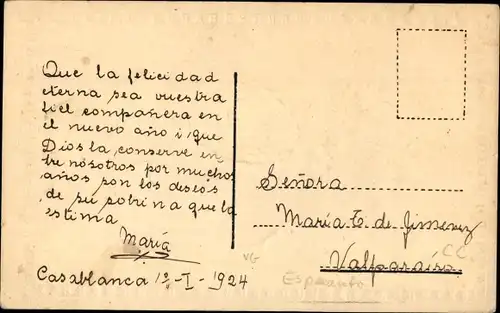 Que la felicidad
eterna sea vuestra
fiel compañera en
el nuevo año i que
Dios la conserve en
tre nosotros por muchos
años son los deseos
de su sobrina que la
estima
María
Casablanca 1º-I-1924
Señora
María T. de Jimenez
Valparaíso
Esperanto
VG
CC